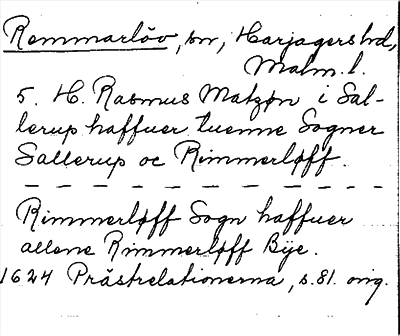 Remmarlöv, sn, Harjagers hd,
Malm. l.
5. H. Rasmus Matzøn i Sal-
lerup haffuer tuenne Sogner
Sallerup oc Rimmerløff.
Rimmerløff Sogn haffuer
allene Rimmerløff Bÿe.
1624 Prästrelationerna, s. 81. orig.